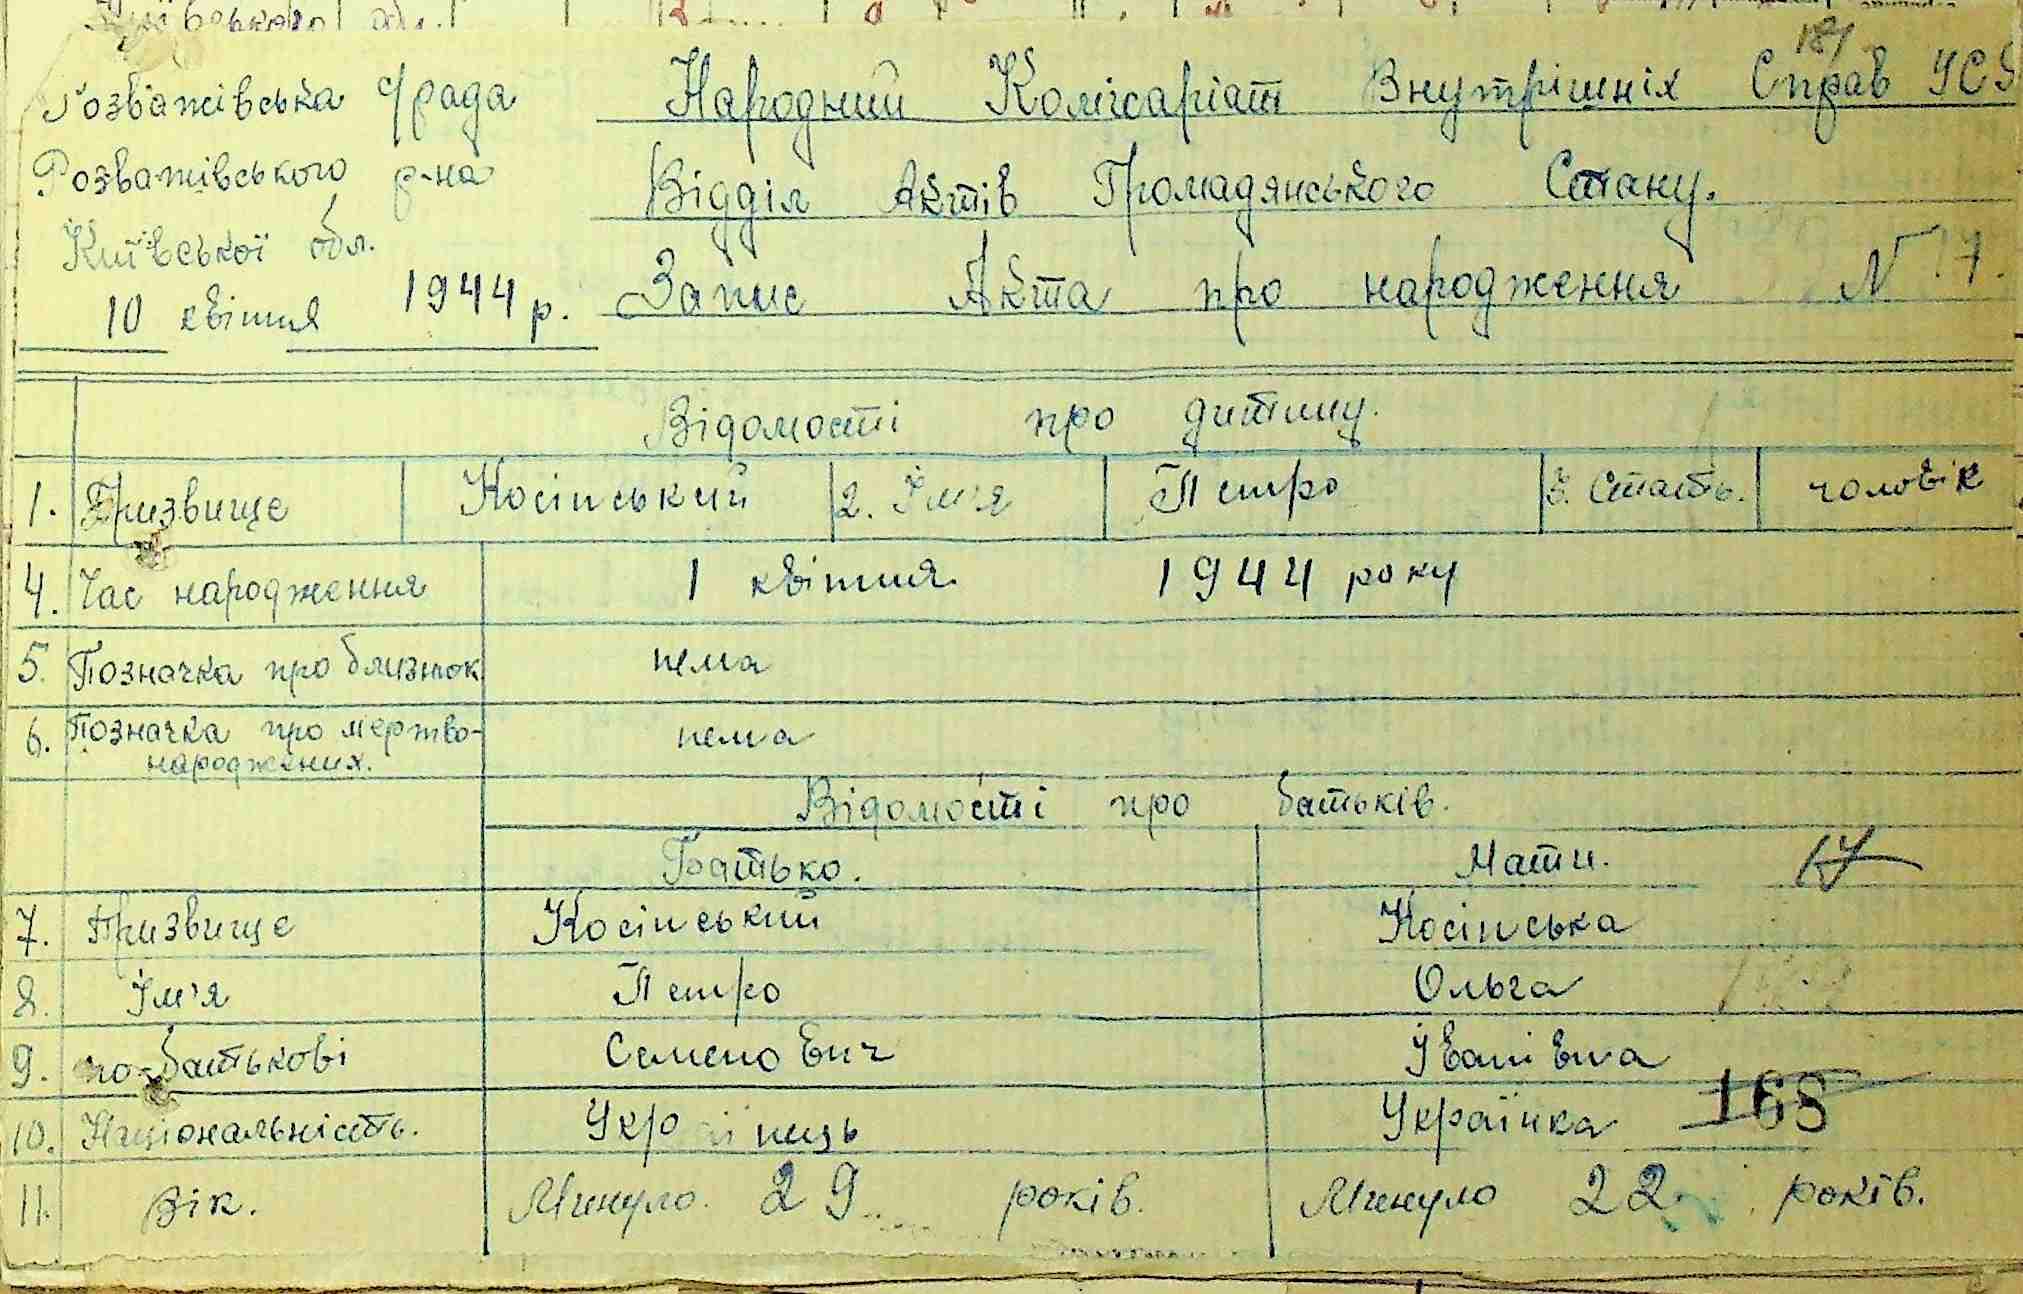 Київського обл.
181
Розважівська с/рада
Розважівського р-на
Київської обл.
10 квітня 1944 р.
Народний Комісаріат Внутрішніх Справ УСР
Відділ Актів Громадянського Стану.
Запис Акта про народження N 17.
Відомості про дитину.
1. Призвище Косінський 2. Ім'я Петро 3. Стать. чоловік
4. Час народження 1 квітня 1944 року
5. Позначка про близнюк нема
6. Позначка про мертво-
народжених. нема
Відомості про батьків.
Батько. Мати. 17
7. Призвище Косінський Косінська
8. Ім'я Петро Ольга
9. по-батькові Семенович Іванівна
10. Національність. Українець Українка 168
11. Вік. Минуло 29 років. Минуло 22 років.